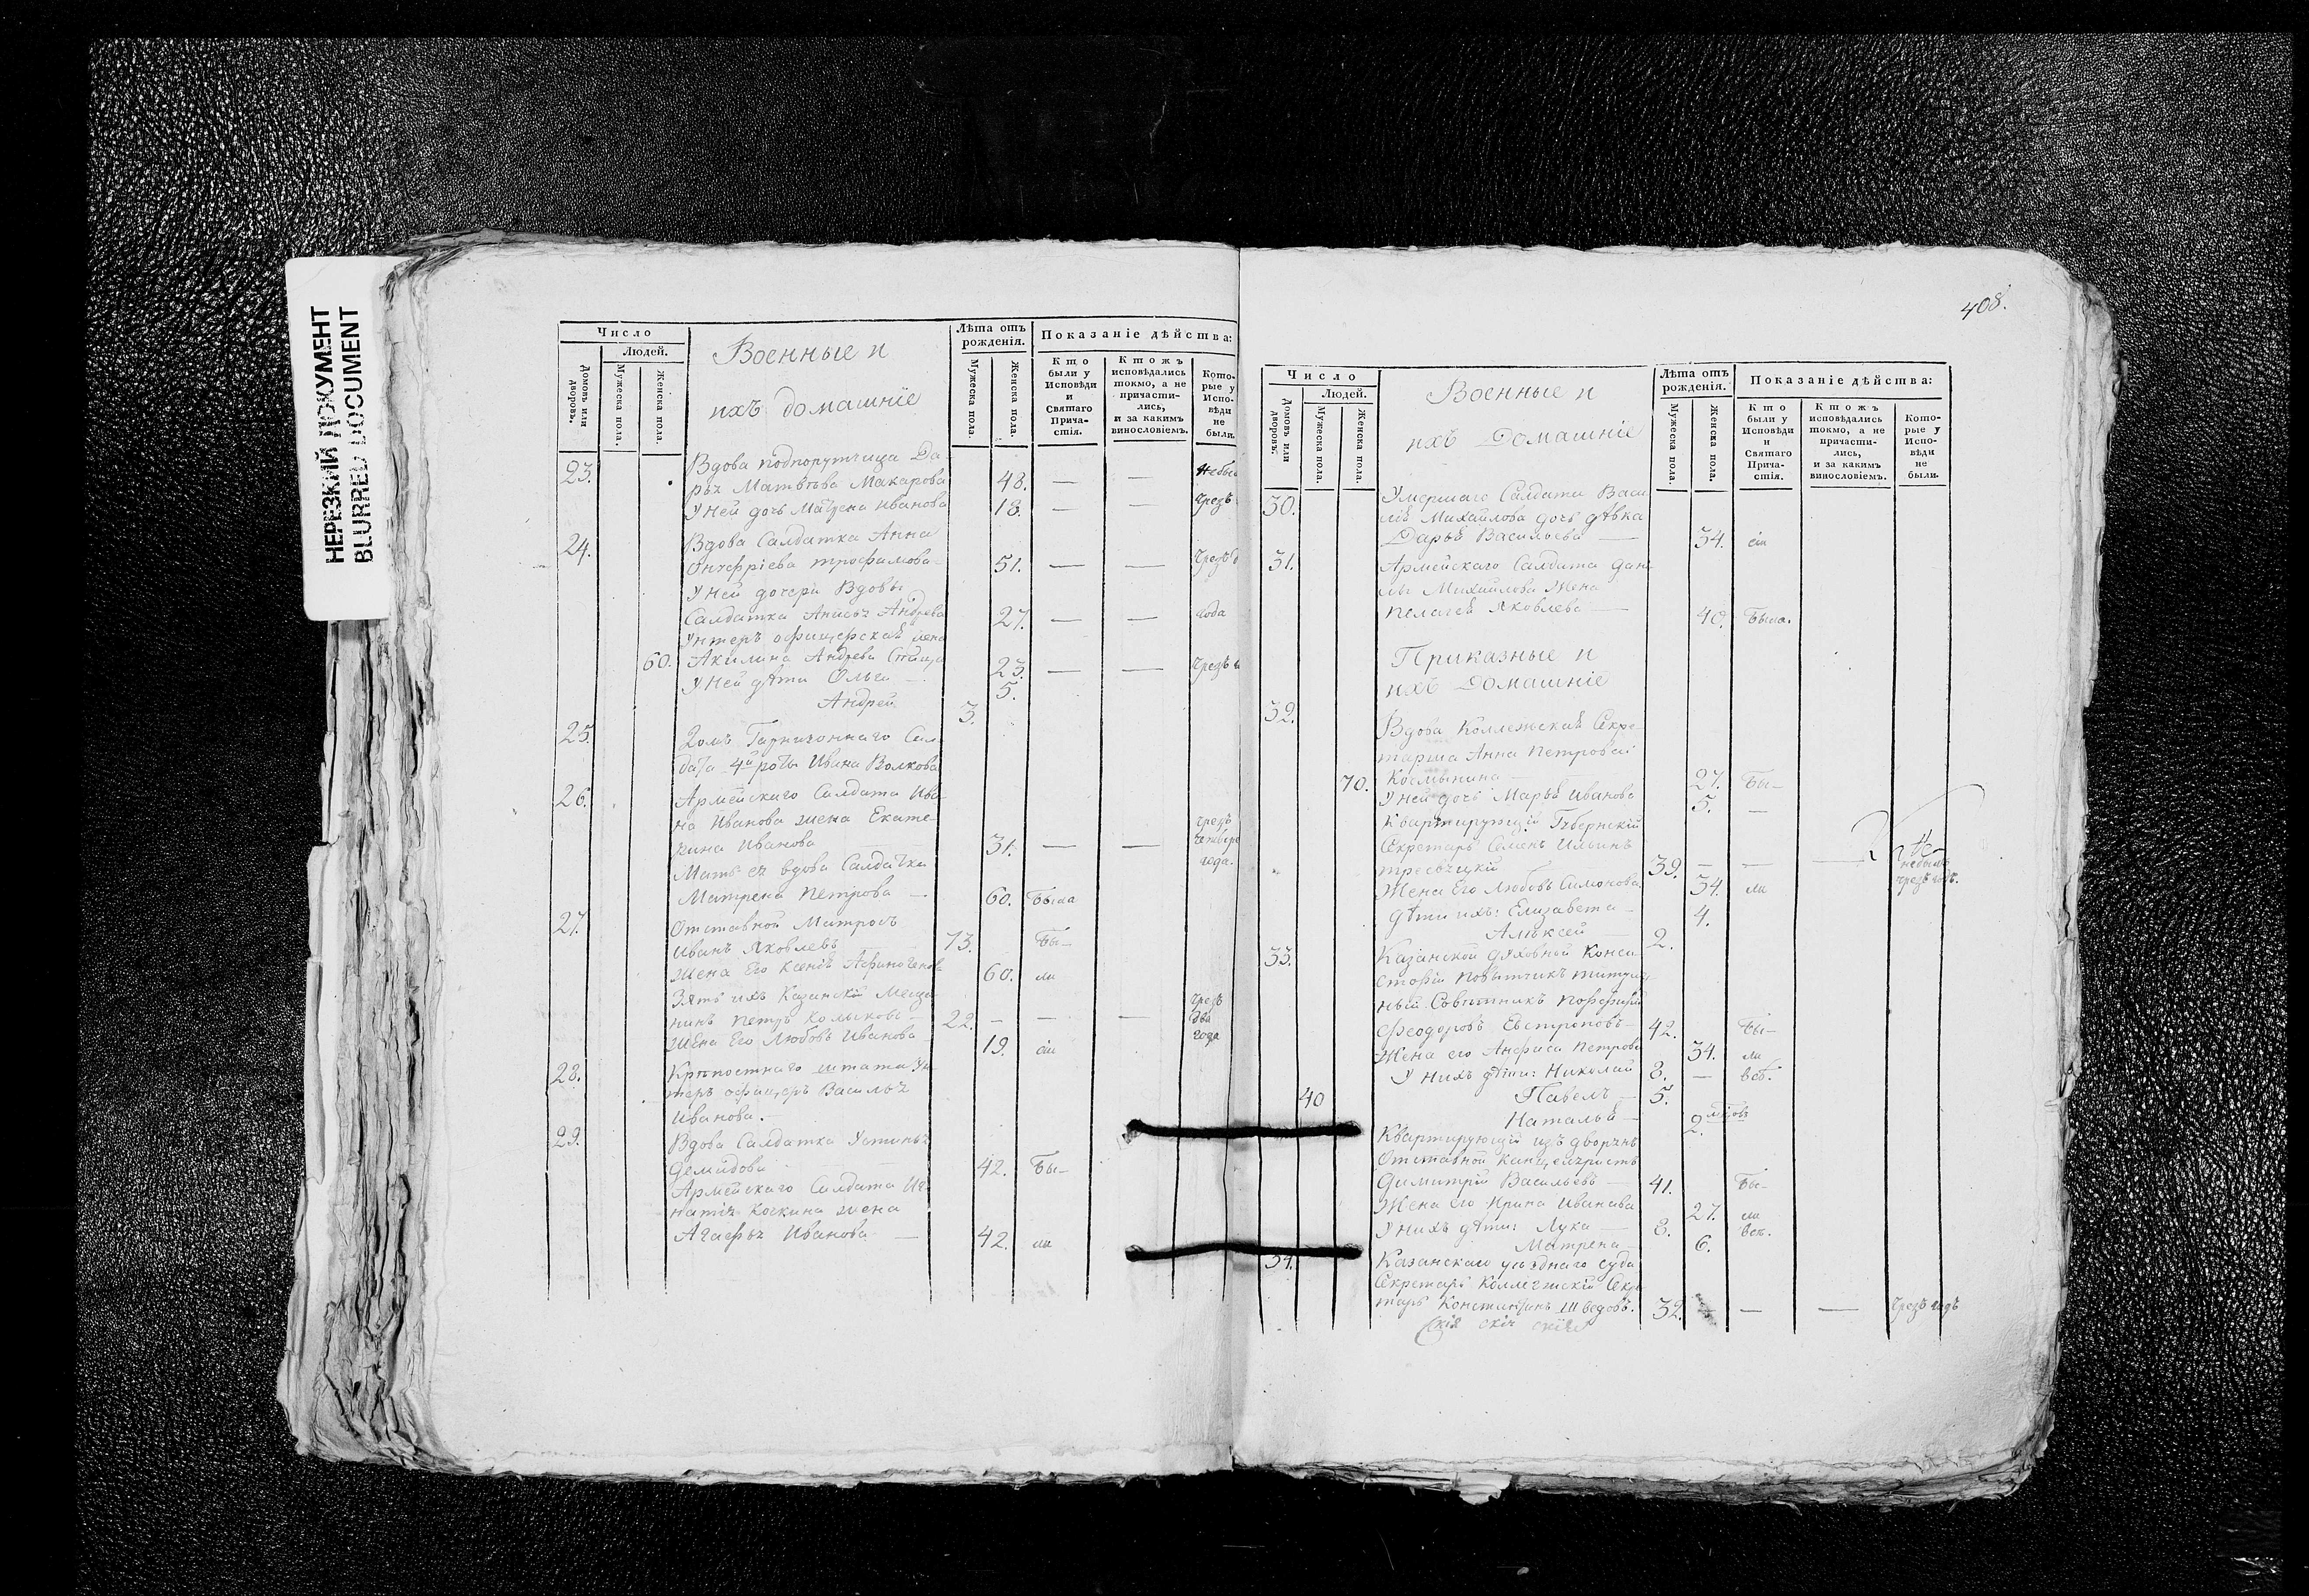 НЕРЕЗКИЙ ДОКУМЕНТ
BLURRED DOCUMENT
Число
Людей.
Домовъ или дворовъ.
Мужеска пола.
Женска пола.
Военные и
ихъ домашніе
Лѣта отъ рожденія.
Мужеска пола.
Женска пола.
Показаніе дѣйства:
Кто были у Исповѣди и Святаго Прича- стія.
Ктожъ исповѣдались токмо, а не причасти- лись, и за какимъ винословіемъ.
Кото- рые у Испо- вѣди не были.
Вдова подпорутчица Да-
23. рья Матвѣева Макарова 48. — —
У ней дочь Матрена Иванова 18. — — чрезъ
24. Вдова Салдатка Анна
Онуфріева трофимова 51. — — чрезъ
У ней дочери Вдовы
Салдатка Анисья Андреева 27. — — года
Унтеръ офицерская жена
60. Акилина Андреева 23. — — чрезъ
У ней дѣти Ольга — 5.
Андрей 3.
25. Домъ Гарнизоннаго Сал-
дата 4й роты Ивана Волкова
26. Армейскаго Салдата Ива-
на Иванова жена Екате-
рина Иванова 31. — — чрезъ четыре года.
Мать ея вдова Салдатка
Матрена Петрова — 60. Была
27. Отставной Матрозъ
Иванъ Яковлевъ 73. Бы-
жена Его Ксенія 60. ли
Зять ихъ Казанскій Меща-
нинъ Петръ 22. — — — чрезъ два года
жена Его Любовь Иванова 19. сіи
28. Крѣпостнаго штата Ун-
теръ офицеръ Василья
Иванова.
29. Вдова Салдатка Устинья
Демидова 42. Бы-
Армейскаго Салдата Иг-
натья Кочкина жена
Агафья Иванова — 42. ли
408.
Число
Людей.
Домовъ или дворовъ.
Мужеска пола.
Женска пола.
Военные и
ихъ Домашніе
Лѣта отъ рожденія.
Мужеска пола.
Женска пола.
Показаніе дѣйства:
Кто были у Исповѣди и Святаго Прича- стія.
Ктожъ исповѣдались токмо, а не причасти- лись, и за какимъ винословіемъ.
Кото- рые у Испо- вѣди не были.
30. Умершаго Салдата Васи-
лія Михайлова дочь дѣвка
Дарья Васильева — 34. сіи
31. Армейскаго Салдата Дани-
лы Михайлова Жена
Пелагея Яковлева — 40. Была.
Приказные и
ихъ Домашніе
32. Вдова Коллежская Секре-
тарша Анна Петрова
70. 27. Бы-
У ней дочь Марья Иванова 5. —
Квартирующій Губернскій
Секретарь Семенъ Ильинъ
39. — — — небылъ чрезъ годъ.
Жена Его Любовь Симонова 34. ли
дѣти ихъ: Елизавета — 4.
Алексей — 2.
33. Казанской духовной Конси-
сторіи Повытчикъ титуляр-
ный Совѣтникъ Порфирій
Феодоровъ Евстроповъ — 42. Бы-
Жена его Анфиса Петрова 34. ли
У нихъ дѣти: Николай 8. — всѣ.
40 Павелъ — 5.
Наталья — 2.
Квартирующій изъ дворянъ
Отставной Канцеляристъ
Димитрій Васильевъ — 41. Бы-
Жена его Ирина Иванова 27. ли
У нихъ дѣти: Лука — 8. всѣ.
Матрена — 6.
34. Казанскаго уѣзднаго суда
Секретарь Коллежскій Секре-
тарь Константинъ Шведовъ. 32. — — чрезъ годъ